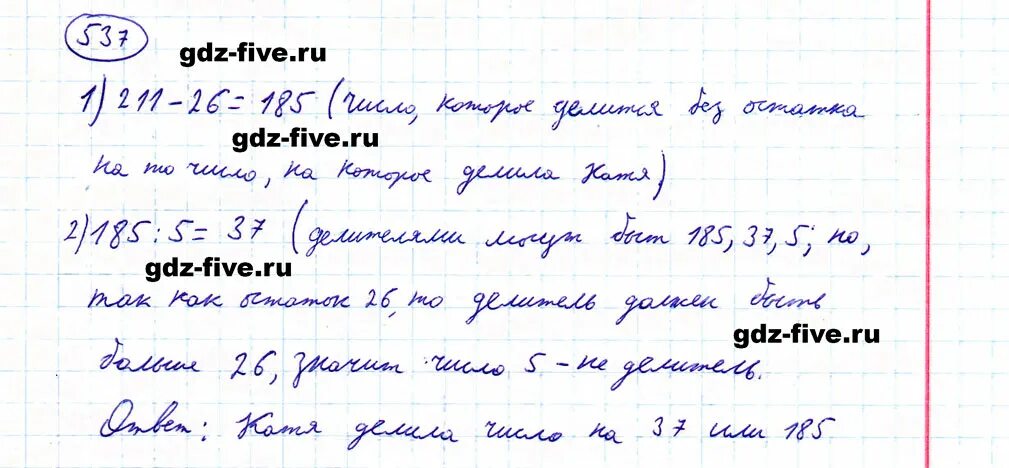 537
gdz-five.ru
1) 211 - 26 = 185 (число, которое делится без остатка
gdz-five.ru
на то число, на которое делила Катя)
2) 185 : 5 = 37 (делителями могут быт 185, 37, 5; но,
gdz-five.ru
так как остаток 26, то делитель должен быть
gdz-five.ru
больше 26, значит число 5 - не делитель.
Ответ: Катя делила число на 37 или 185